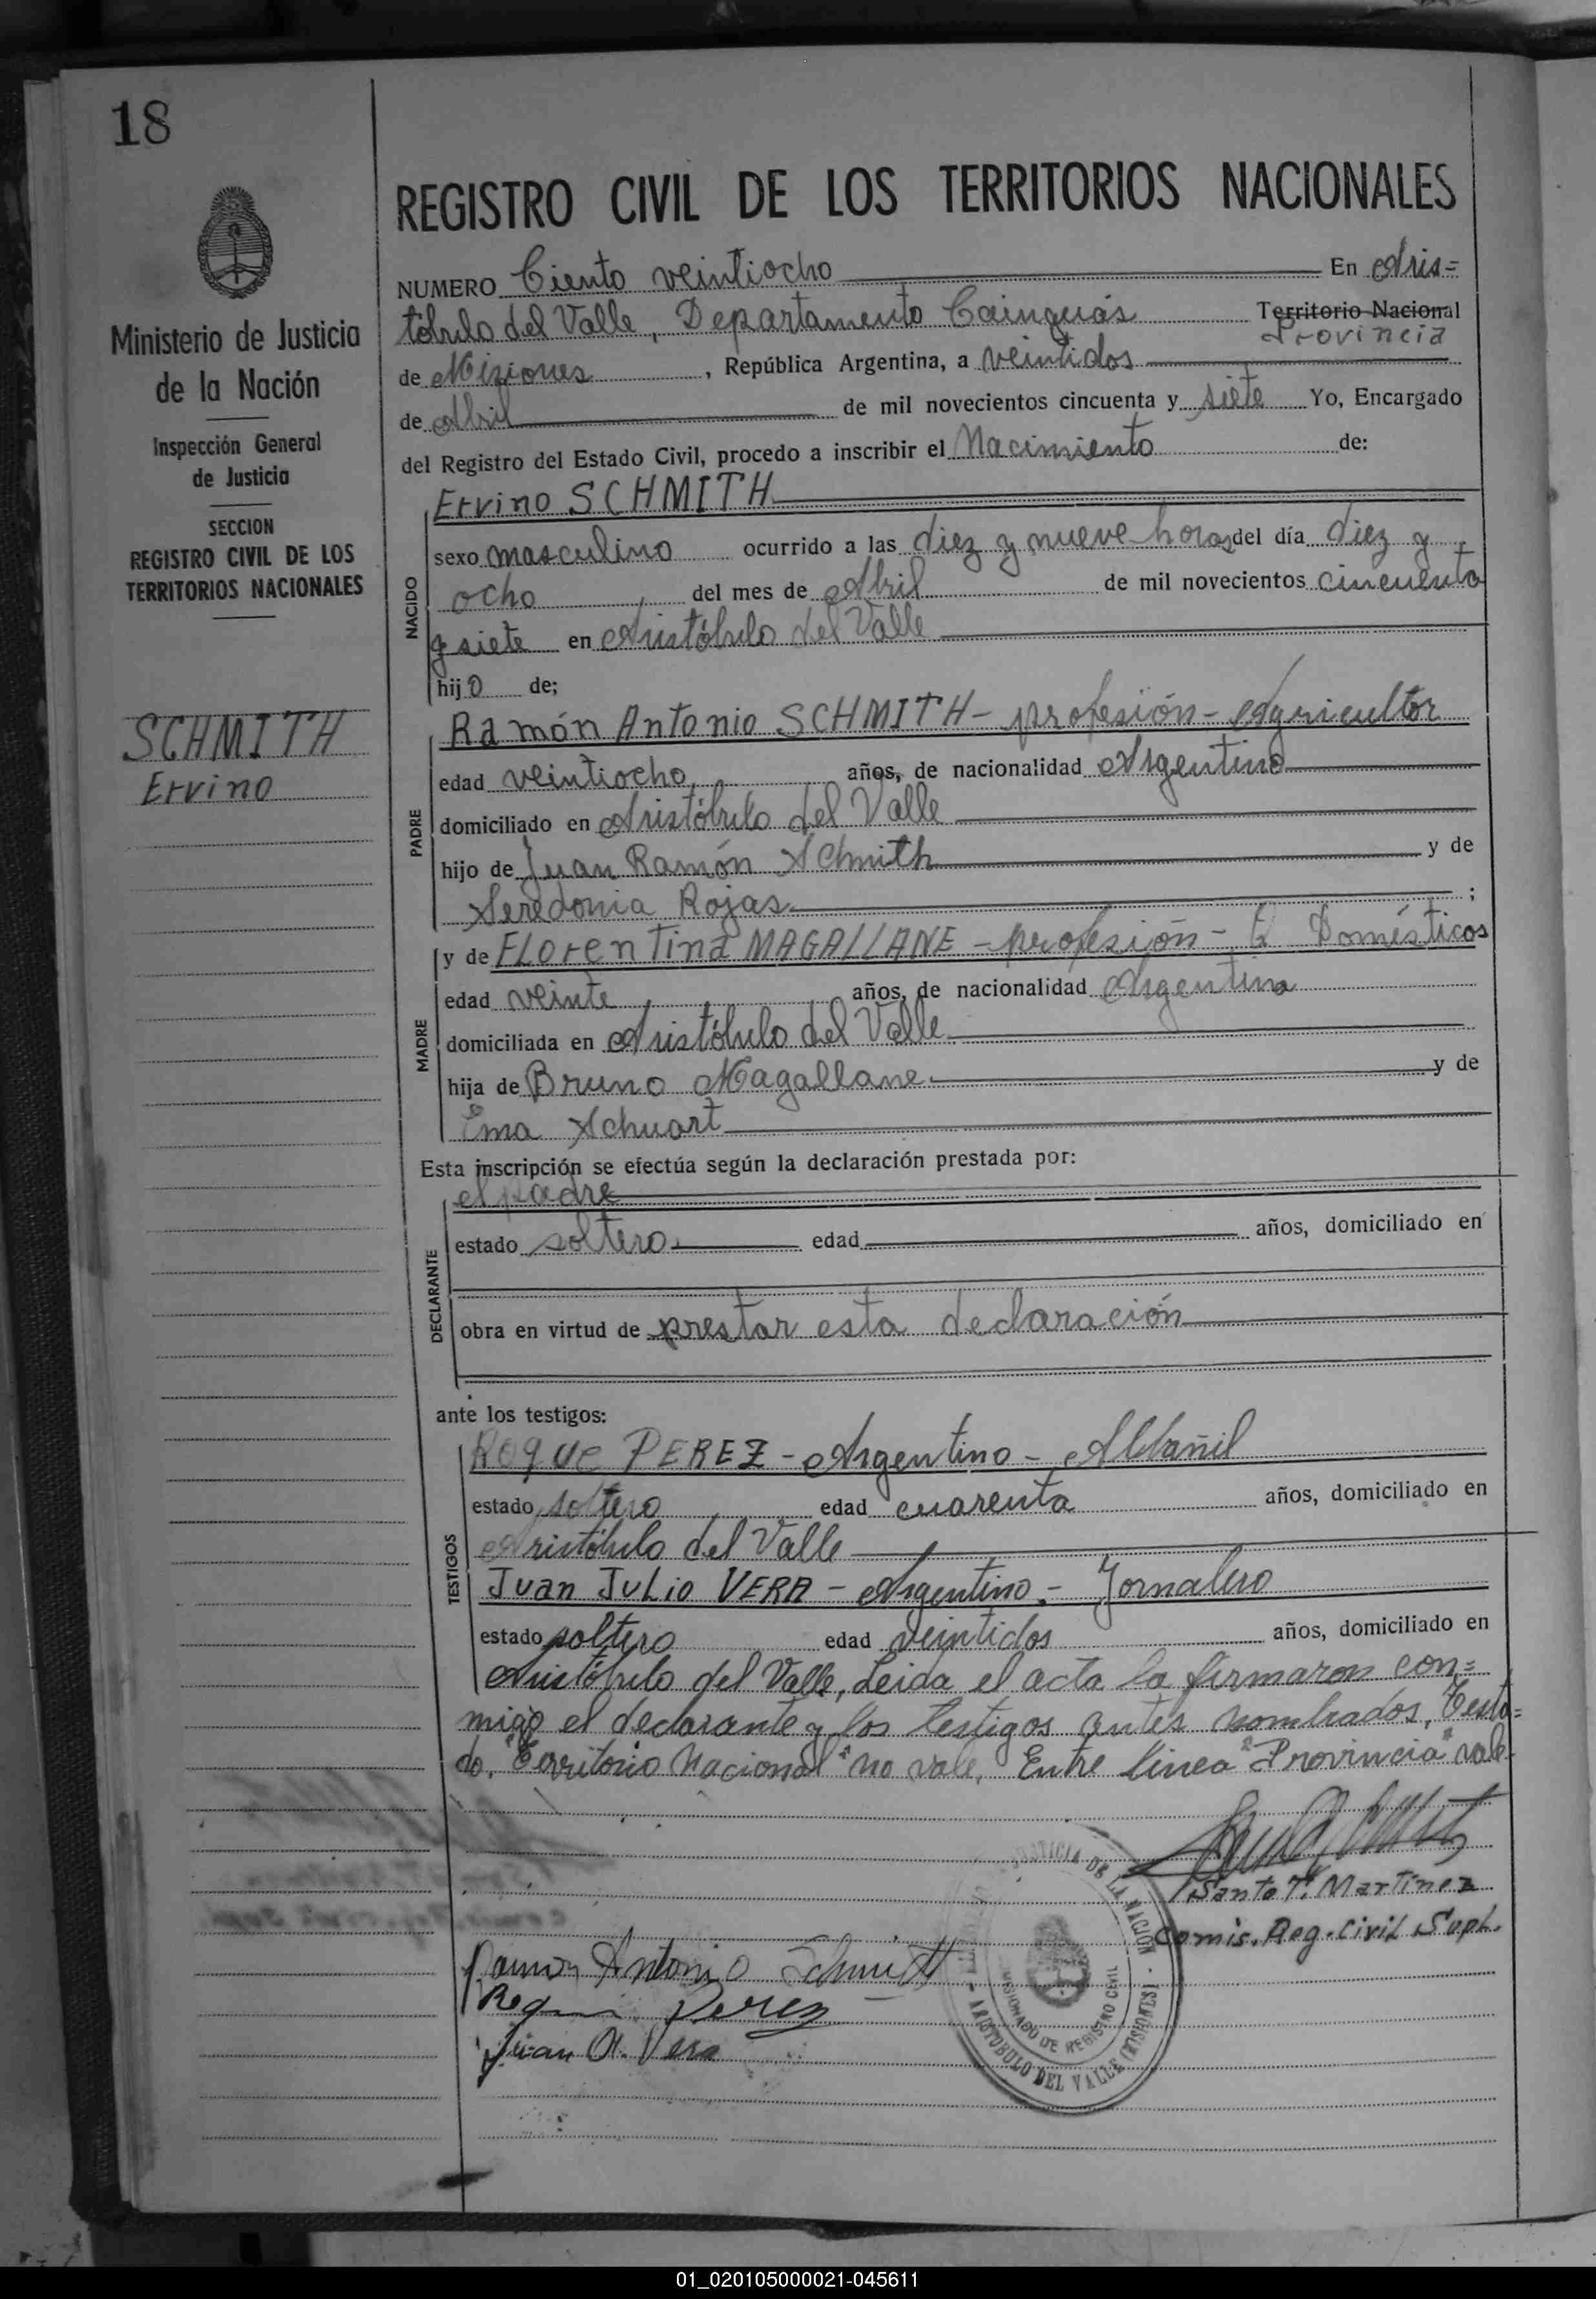 18
REGISTRO CIVIL DE LOS TERRITORIOS NACIONALES
Ministerio de Justicia
de la Nación
Inspección General
de Justicia
SECCION
REGISTRO CIVIL DE LOS
TERRITORIOS NACIONALES
SCHMITH
Ervino
NUMERO Ciento veintiocho En Aris=
tóbulo del Valle, Departamento Cainguás Territorio Nacional
Provincia
de Misiones, República Argentina, a veintidos
de Abril de mil novecientos cincuenta y siete Yo, Encargado
del Registro del Estado Civil, procedo a inscribir el Nacimiento de:
NACIDO
Ervino SCHMITH
sexo masculino ocurrido a las diez y nueve horas del día diez y
ocho del mes de Abril de mil novecientos cincuenta
y siete en Aristóbulo del Valle
hijo de;
PADRE
Ramón Antonio SCHMITH - profesión - Agricultor
edad veintiocho años, de nacionalidad Argentino
domiciliado en Aristóbulo del Valle
hijo de Juan Ramón Schmith y de
Seredonia Rojas ;
MADRE
y de FLorentina MAGALLANE - profesión - Q. Domésticos
edad veinte años, de nacionalidad Argentina
domiciliada en Aristóbulo del Valle
hija de Bruno Magallane y de
Ema Schuart
Esta inscripción se efectúa según la declaración prestada por:
DECLARANTE
el padre
estado soltero edad años, domiciliado en
obra en virtud de prestar esta declaración
ante los testigos:
TESTIGOS
Roque PEREZ - Argentino - Albañil
estado soltero edad cuarenta años, domiciliado en
Aristóbulo del Valle
Juan JuLio VERA - Argentino - Jornalero
estado soltero edad veintidos años, domiciliado en
Aristóbulo del Valle, Leida el acta la firmaron con=
migo el declarante y los testigos antes nombrados, Testa=
do, "Territorio Nacional" no vale, Entre linea "Provincia" vale
Santo T. Martínez
Comis. Reg. Civil Supl.
Ramon Antonio Schmith
Perez
Juan Vera
JUSTICIA DE LA NACION
REGISTRO CIVIL
ARISTOBULO DEL VALLE (MISIONES)
01_020105000021-045611